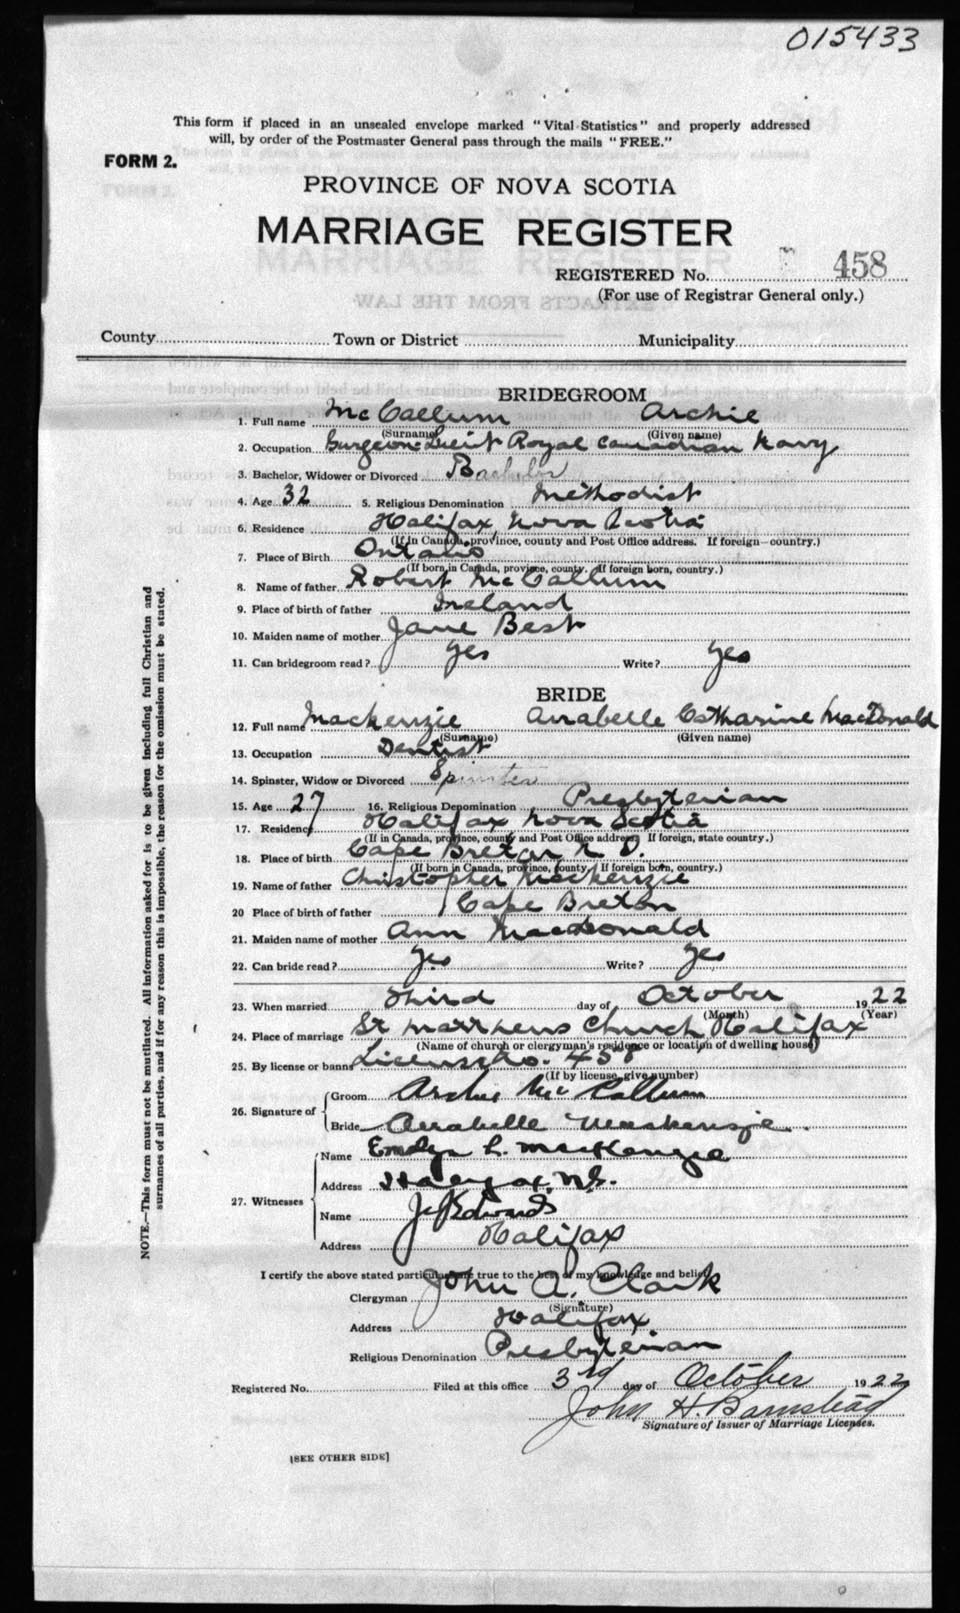 015433
This form if placed in an unsealed envelope marked "Vital Statistics" and properly addressed
will, by order of the Postmaster General pass through the mails "FREE."
FORM 2.
PROVINCE OF NOVA SCOTIA
MARRIAGE REGISTER
REGISTERED No. 458
(For use of Registrar General only.)
County Town or District Municipality
BRIDEGROOM
1. Full name McCallum Archie
(Surname) (Given name)
2. Occupation Surgeon-Lieut Royal Canadian Navy
3. Bachelor, Widower or Divorced Bachelor
4. Age 32 5. Religious Denomination Methodist
6. Residence Halifax, Nova Scotia
(If in Canada, province, county and Post Office address. If foreign—country.)
7. Place of Birth Ontario
(If born in Canada, province, county. If foreign born, country.)
8. Name of father Robert McCallum
9. Place of birth of father Ireland
10. Maiden name of mother Jane Best
11. Can bridegroom read? Yes Write? Yes
BRIDE
12. Full name Mackenzie Arrabelle Catharine MacDonald
(Surname) (Given name)
13. Occupation Dentist
14. Spinster, Widow or Divorced Spinster
15. Age 27 16. Religious Denomination Presbyterian
17. Residency Halifax Nova Scotia
(If in Canada, province, county and Post Office address. If foreign, state country.)
18. Place of birth Cape Breton N. S.
(If born in Canada, province, county. If foreign born, country.)
19. Name of father Christopher Mackenzie
20 Place of birth of father Cape Breton
21. Maiden name of mother Ann Macdonald
22. Can bride read? Yes Write? Yes
23. When married Third day of October 1922
(Month) (Year)
24. Place of marriage St Matthews Church Halifax
(Name of church or clergyman's residence or location of dwelling house)
25. By license or banns License No. 458
(If by license, give number)
26. Signature of Groom Archie McCallum
Bride Arrabelle Mackenzie
27. Witnesses
Name L. MacKenzie
Address Halifax, N.S.
Name Edwards
Address Halifax
I certify the above stated particulars are true to the best of my knowledge and belief.
Clergyman John A. Clark
(Signature)
Address Halifax
Religious Denomination Presbyterian
Registered No. Filed at this office 3rd day of October 1922
John H. Barnstead
Signature of Issuer of Marriage Licenses.
[SEE OTHER SIDE]
NOTE.—This form must not be mutilated. All information asked for is to be given including full Christian and
surnames of all parties, and if for any reason this is impossible, the reason for the omission must be stated.